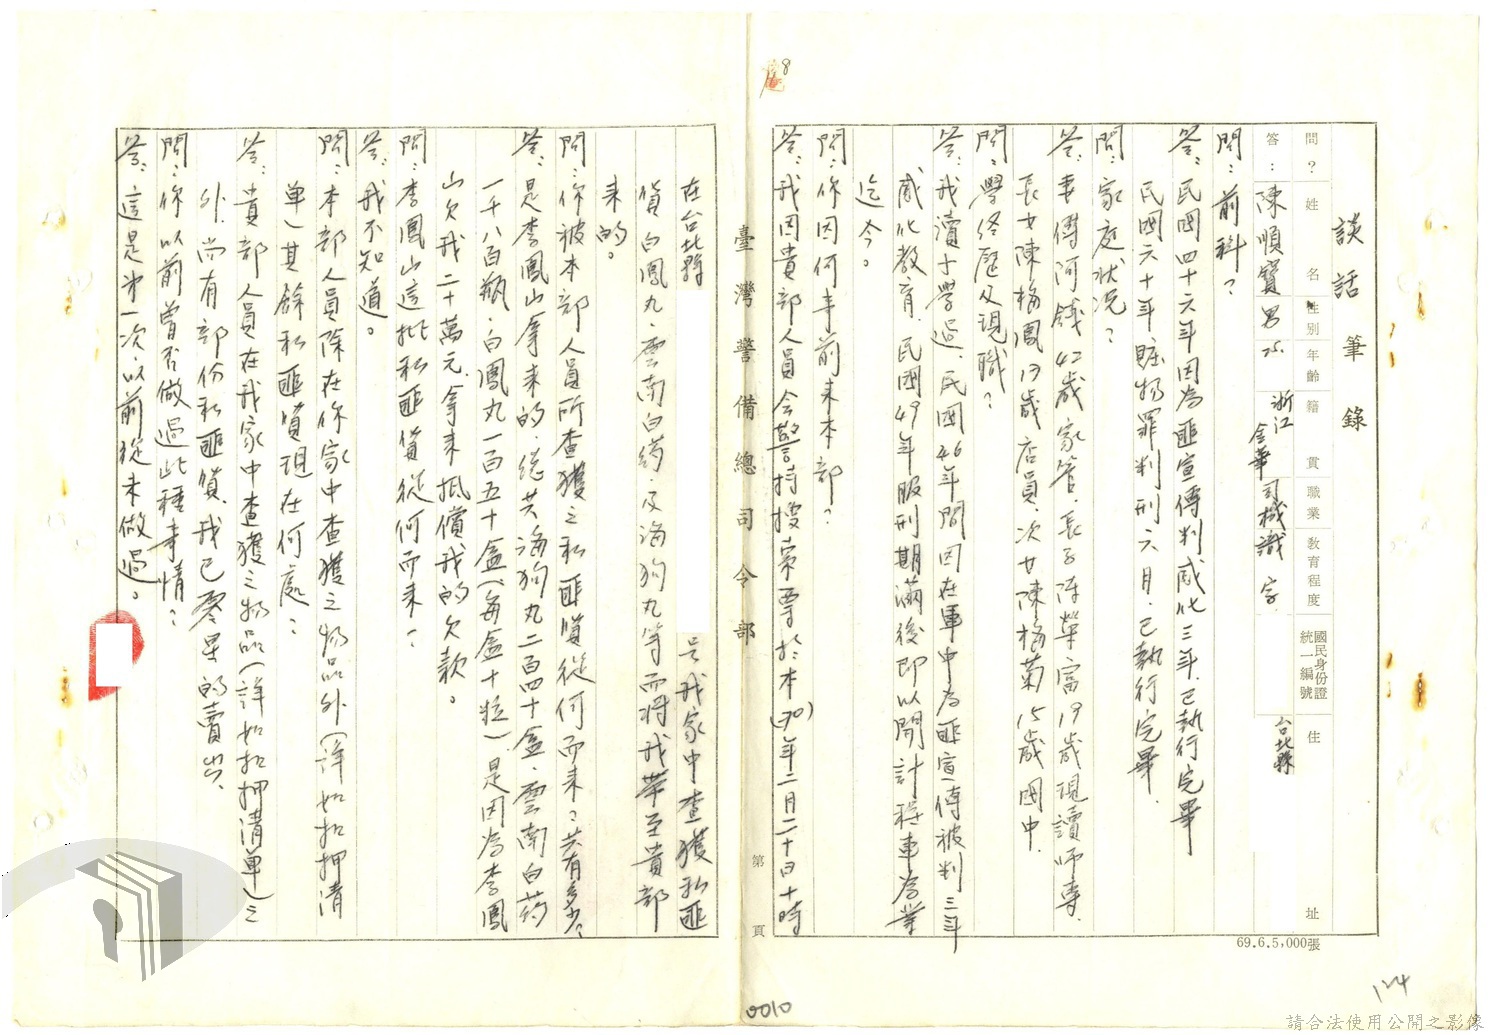 談話筆錄
問？姓名 性別 年齡 籍貫 職業 教育程度 國民身份證統一編號 住址
答：陳順寶 男 浙江金華 司機 識字 台北縣
問：前科？
答：民國四十六年因為匪宣傳判感化三年，已執行完畢
民國六十年賍物罪判刑六月，已執行完畢，
問：家庭狀況？
答：妻傅阿錢42歲家管，長子陳榮富19歲現讀師專，
長女陳梅鳳17歲店員，次女陳梅菊15歲國中，
問：學經歷及現職？
答：我讀小學過，民國46年間因在軍中為匪宣傳被判三年
感化教育，民國49年服刑期滿後即以開計程車為業
迄今。
問：你因何事前來本部？
答：我因貴部人員會警持搜索票於本(70)年二月二十日十時
臺灣警備總司令部
第 頁
在台北縣 号我家中查獲私匪
貨白鳳丸、雲南白葯、及海狗丸等而將我帶至貴部
來的。
問：你被本部人員所查獲之私匪貨從何而來？共有多少？
答：是李鳳山拿來的，總共海狗丸二百四十盒、雲南白葯
一千八百瓶、白鳳丸一百五十盒(每盒十粒)，是因為李鳳
山欠我二十萬元，拿來抵償我的欠款。
問：李鳳山這批私匪貨從何而來？
答：我不知道。
問：本部人員除在你家中查獲之物品外(詳如扣押清
單)其餘私匪貨現在何處？
答：貴部人員在我家中查獲之物品(詳如扣押清單)之
外，尚有部份私匪貨，我已零星的賣出，
問：你以前曾否做過此種事情？
答：這是第一次，以前從未做過。
69.6.5,000張
0010
124
請合法使用公開之影像